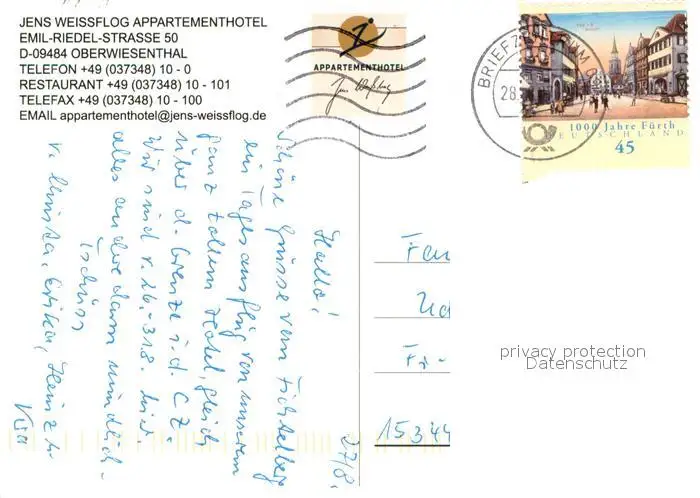 JENS WEISSFLOG APPARTEMENTHOTEL
EMIL-RIEDEL-STRASSE 50
D-09484 OBERWIESENTHAL
TELEFON +49 (037348) 10 - 0
RESTAURANT +49 (037348) 10 - 101
TELEFAX +49 (037348) 10 - 100
EMAIL appartementhotel@jens-weissflog.de
APPARTEMENTHOTEL
Jens Weißflog
BRIEFZENTRUM
28.
1000 Jahre Fürth
DEUTSCHLAND
45
27/8.
Hallo!
Schöne Grüsse vom Fichtelberg
ein Tagesausflug von unserem
ganz tollem Hotel, gleich
über d. Grenze i. d. CZ.
Wir sind v. 26.-31.8. hier
alles andere dann mündlich.
Tschüss
v. Erika, Heinz u.
15344
privacy protection
Datenschutz